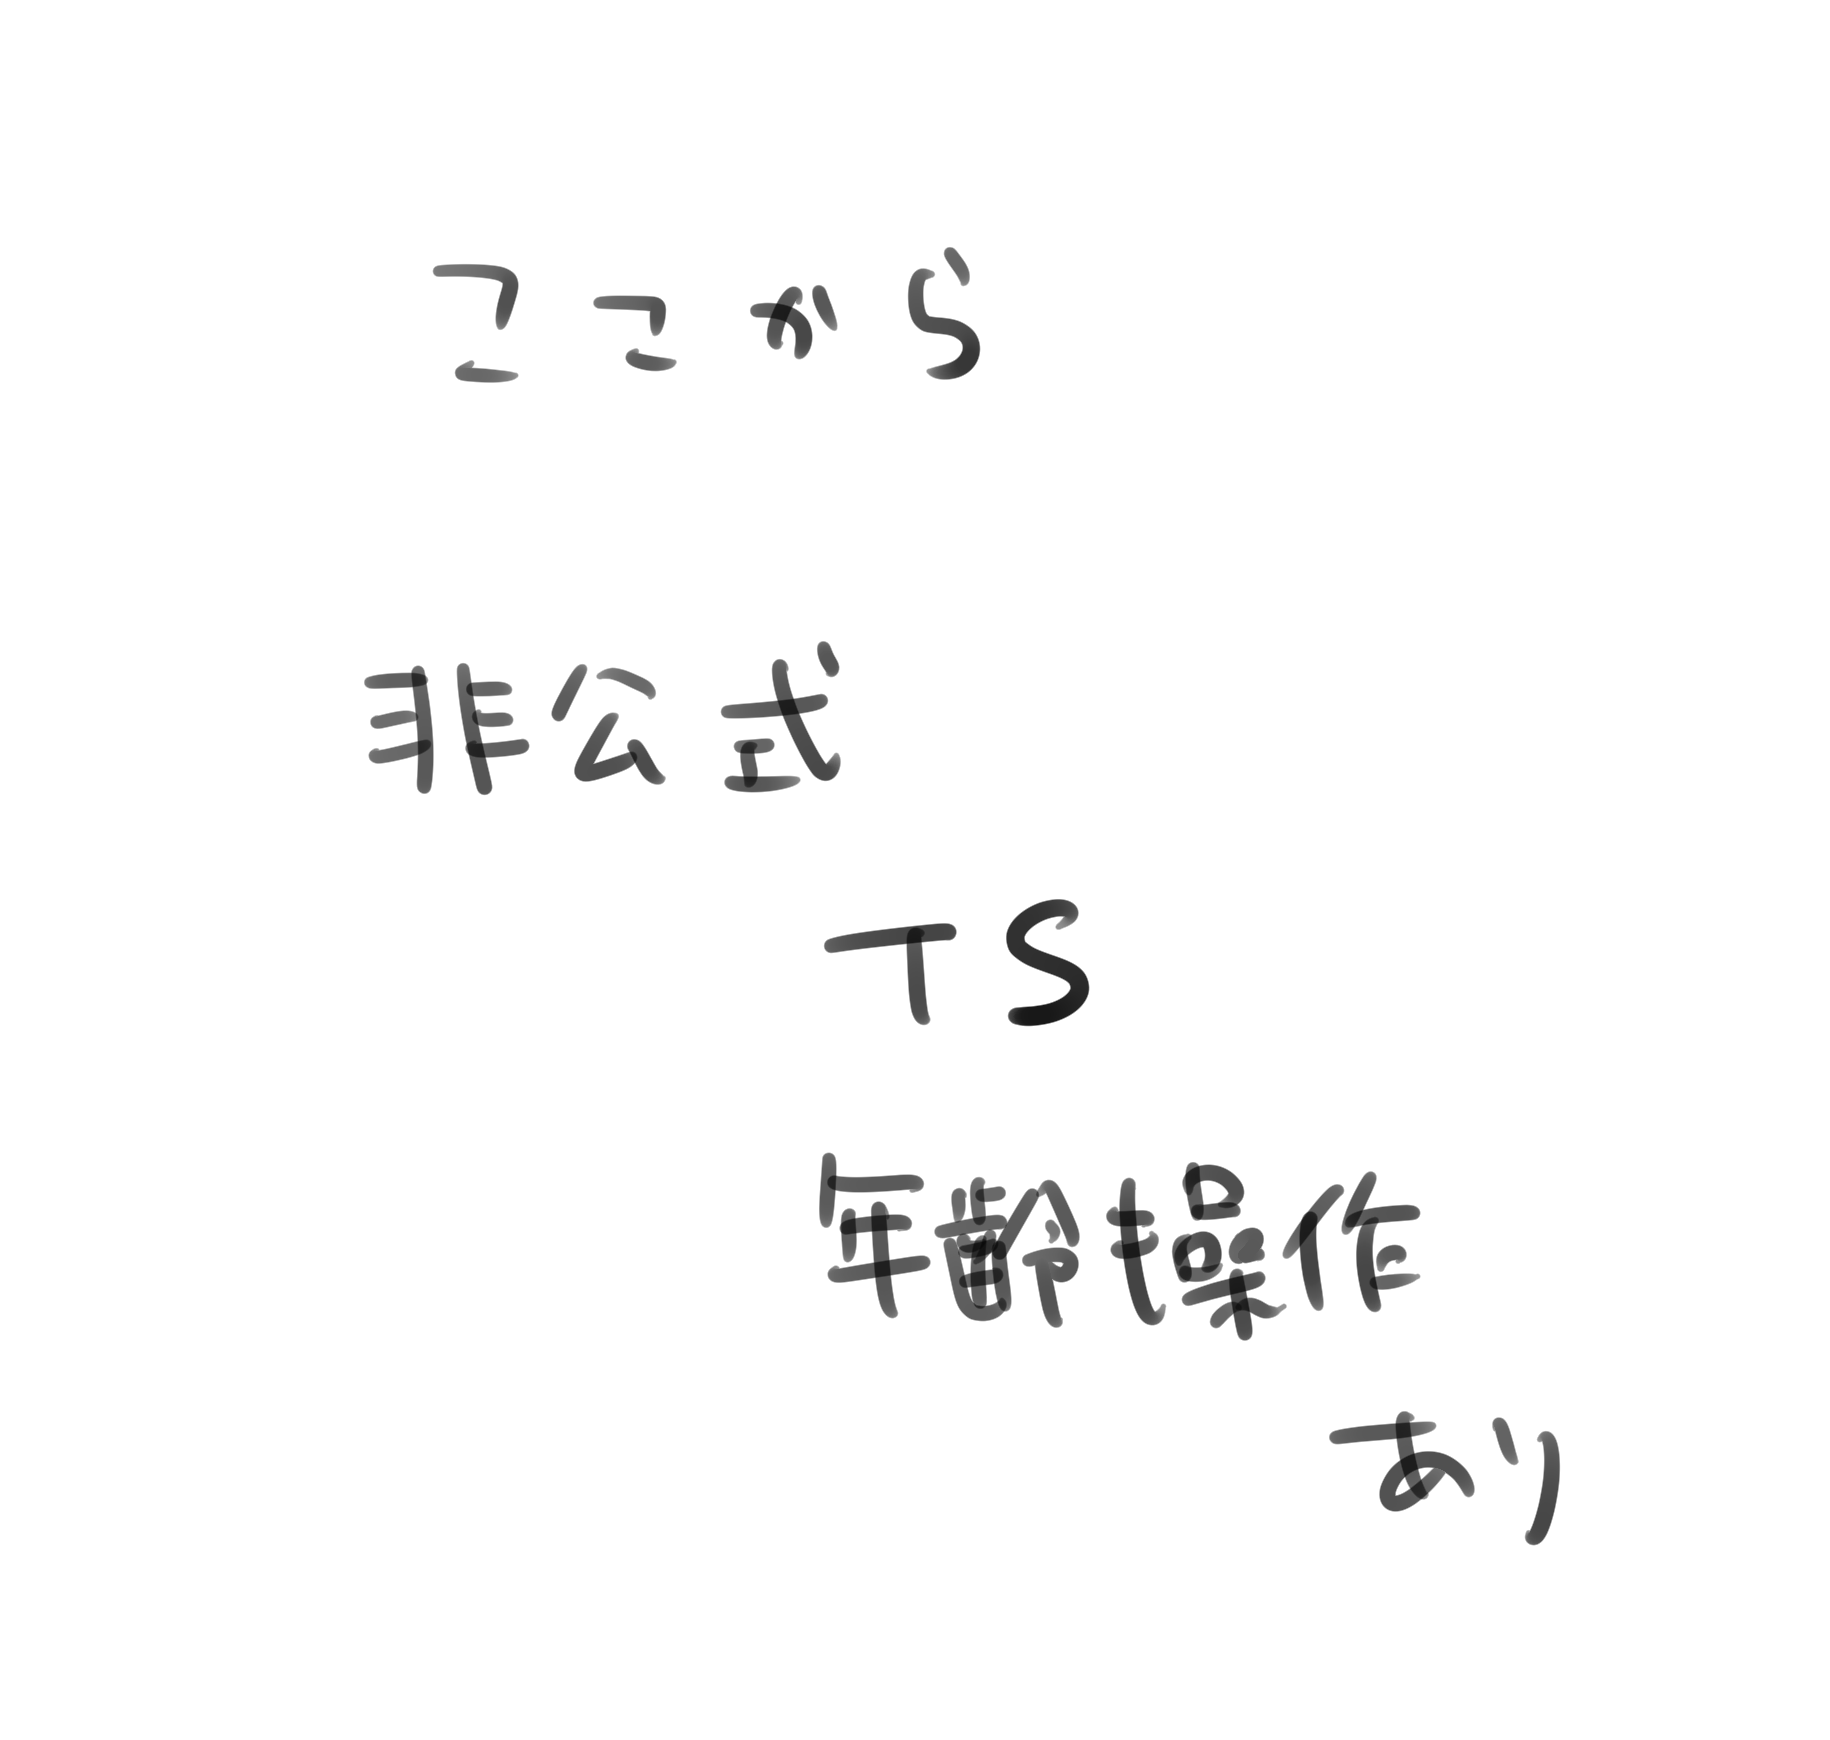 ここから
非公式
TS
年齢操作
あり